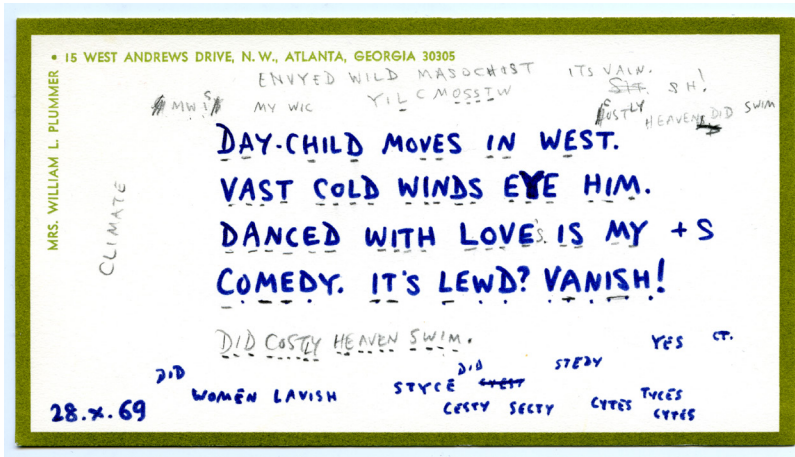 • 15 WEST ANDREWS DRIVE, N. W., ATLANTA, GEORGIA 30305
MRS. WILLIAM L. PLUMMER
ENVYED WILD MASOCHOST ITS VAIN.
MWIS MY WIC YILCMOSSTW SIT. SH!
COSTLY HEAVEN DID SWIM
DAY-CHILD MOVES IN WEST.
VAST COLD WINDS EYE HIM.
CLIMATE
DANCED WITH LOVE'S. IS MY + S
COMEDY. IT'S LEWD? VANISH!
DID COSTLY HEAVEN SWIM.
YES CT.
DID WOMEN LAVISH STYCE DID STEDY
CESTY SECTY CYTES TYCES
CYTES
28.X.69